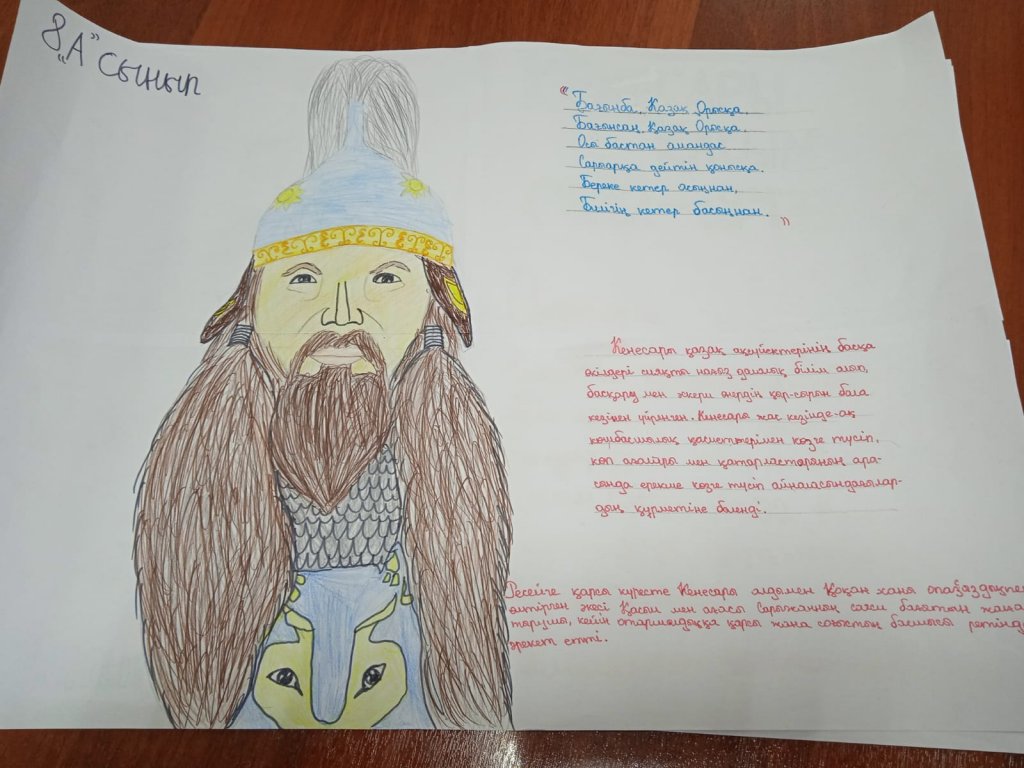 8 "А" сынып
"Бағынба, Қазақ Орысқа,
Бағынсаң, Қазақ Орысқа
Осы бастан амандас
Сарыарқа дейтін қонысқа.
Береке кетер асыңнан,
Билігің кетер басыңнан."
Кенесары қазақ ақсүйектерінің басқа
өкілдері сияқты нағыз далалық білім алып,
басқару мен әскери өнердің қыр-сырын бала
кезінен үйренген. Кенесары жас кезінде-ақ
қолбасшылық қасиеттерімен көзге түсіп,
көп ағалары мен қатарластарының ара-
сында ерекше көзге түсіп айналасындағылар-
дың құрметіне бөленді.
Ресейге қарсы күресте Кенесары алдымен Қоқан ханы опасыздықпен
өлтірген әкесі Қасым мен ағасы Саржанның саяси бағытын жалға
тырушы, кейін отаршылдыққа қарсы жаңа соғыстың басшысы ретінде
әрекет етті.